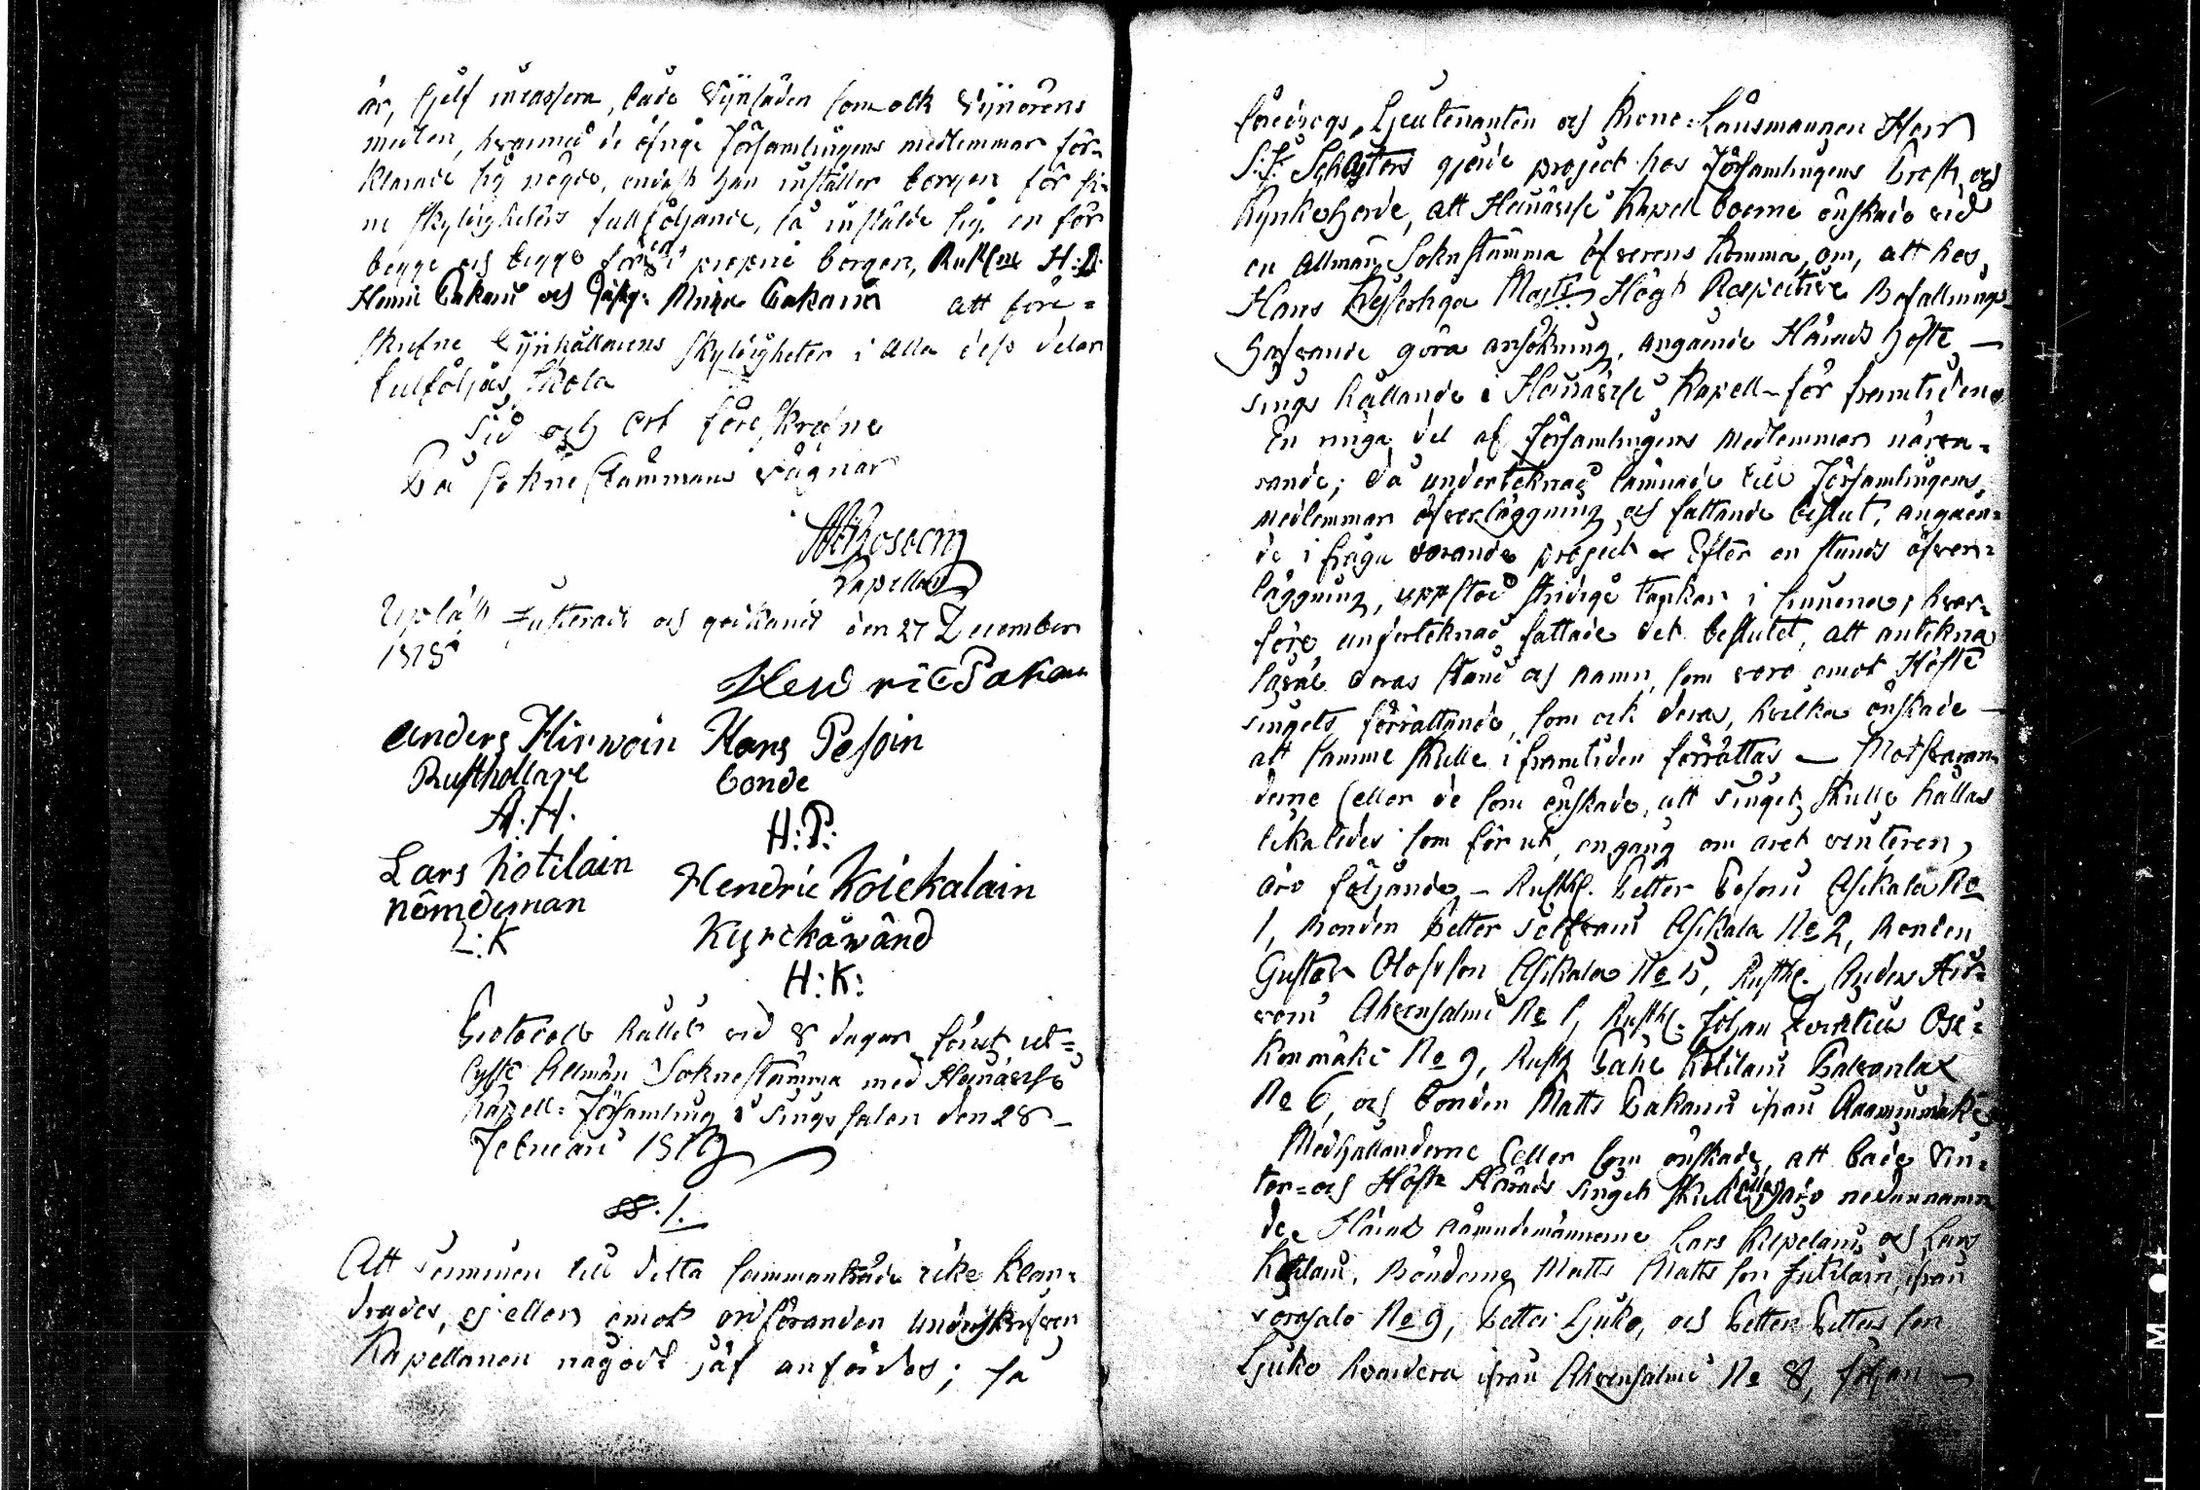 är, sjelf incassera, både Tijnsäden som ock Tijnörens
medlen, hvarmed de öfrige Församlingens medlemmar för-
klarade sig nögde, endast han inställer borgen för si-
ne skyldigheters fullföljande, så instälde sig en för
begge och begge för en i proprie borgen, Rusth: H:
Henric Pakain och Pakain att före=
skrefne Tijnhållarens skyldigheter i alla dess delar
fullföljas skola
Tid och ort föreskrefne
På Sokne Stämmans vägnar
Kapellan
Upläst Justerade och godkänd den 27 December
1818
Hendric Pakain
Anders Hirwoin Hans Pesoin
Rusthollare bonde
A.H. H:P:
Lars Kotilain Hendric Koickalain
nämdeman Kyrckåwänd
L:K
H:K:
Protocoll hållit vid 8 dagar förut ut=
lyst Allmän Soknestämma med Heinävesi
Kapell=Församling i Tings salen den 28
Februarii 1819
§.1.
Att Terminen till detta sammanträde icke klan=
drades, ej eller emot ordföranden underskrifven
Kapellanen någodt jäf anfördes; så
föredrogs Lieutenanten och Krono=Länsmannen Herr
S:F: Schlyters gjorde project hos Församlingens Prost och
Kyrkoherde, att Heinävesi Kapell boerne önskade vid
en Allmän Sokn stämma öfverens komma, om, att hos
Hans Kejserliga Maj:ts Högt Respective Befallnings-
hafvande göra ansökning, angående Härads höste
tings hållande i Heinävesi Kapell för framtiden
En ringa del af Församlingens medlemmar närva=
rande; då undertecknad lämnade till Församlingens
Medlemmar öfverläggning och fattande beslut, angåen=
de i fråga varande project Efter en stunds öfver=
läggning, uppstod stridige tankar i sinnena; hvar=
före undertecknad fattade det beslutet, att anteckna
såväl deras stånd och namn, som voro emot Höste
tingets förrättande, som ock deras, hvilka önskade
att samme skulle i framtiden förrättas — Motsvaran
derne (eller de som önskade, att Tinget skulle hållas
likaledes som förut, en gång om året vinteren,
äro följande — Rusth. Petter Pesoin Asikala No
1, Bonden Petter Asikala No 2, Bonden
Gustav Olofsson Asikala No 15, Rusth. Anders Hir=
voin Ahvensalmi No 1, Rusth. Johan
No 9, Rusth Kotilain Palvanlax
No 6, och bonden Matts Pakain ifrån
Medhållanderne (eller som önskade, att både Vin=
ter= och Höste Härads Tinget skulle hållas äro nedannämn
de. Härads nämndemännerne Lars och Lars
Kotilain, Bönderne Matts Matts son Jutilain, ifrån
No 9, Petter Ljuko, och Petter Petters son
Ljuko hvardera ifrån Ahvensalmi No 8, Johan